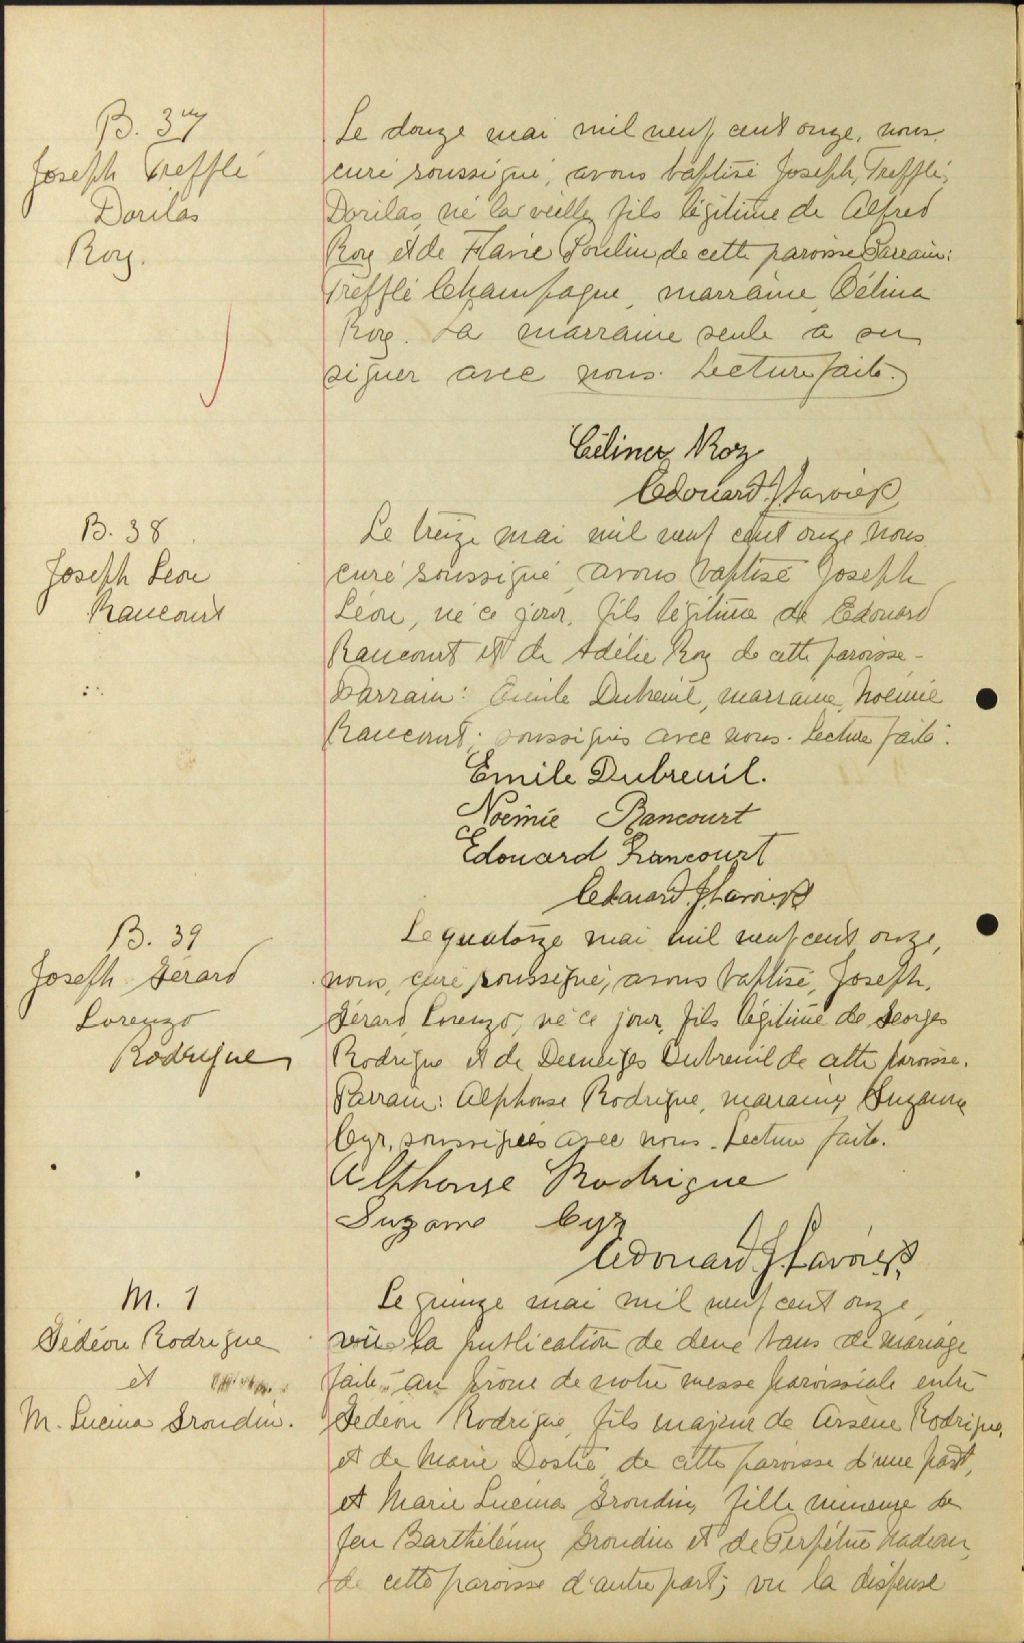 B. 37
Joseph Trefflé
Dorilas
Roy.
Le douze mai mil neuf cent onze, nous
curé soussigné, avons baptisé Joseph, Trefflé,
Dorilas, né la veille, fils légitime de Alfred
Roy et de Flavie Poulin de cette paroisse Parrain:
Trefflé Champagne, marraine, Célina
Roy. La marraine seule a su
signer avec nous. Lecture faite.
Célina Roy
Edouard J. Lavoie Ptre
B. 38
Joseph Léon
Rancourt
Le treize mai mil neuf cent onze nous
curé soussigné, avons baptisé Joseph
Léon, né ce jour, fils légitime de Edouard
Rancourt et de Adélie Roy de cette paroisse -
Parrain: Emile Dubreuil, marraine, Noémie
Rancourt; soussignés avec nous. Lecture faite.
Emile Dubreuil.
Noémie Rancourt
Edouard Rancourt
Edouard J. Lavoie Ptre
B. 39
Joseph Gérard
Lorenzo
Rodrigue
Le quatorze mai mil neuf cent onze,
nous, curé soussigné, avons baptisé, Joseph,
Gérard, Lorenzo, né ce jour, fils légitime de Georges
Rodrigue et de Desneiges Dubreuil de cette paroisse.
Parrain: Alphonse Rodrigue, marraine, Suzanne
Cyr, soussignés avec nous. Lecture faite.
Alphonse Rodrigue
Suzane Cyr
Edouard J. Lavoie Ptre
M. 1
Gédéon Rodrigue
et
M. Lucina Grondin.
Le quinze mai mil neuf cent onze,
vu la publication de deux bans de mariage
faite au prône de notre messe paroissiale entre
Gédéon Rodrigue, fils majeur de Arsène Rodrigue,
et de Marie Dostie, de cette paroisse d'une part,
et Marie Lucina Grondin, fille mineure de
feu Barthélémy Grondin et de Perpétue Nadeau,
de cette paroisse d'autre part; vu la dispense